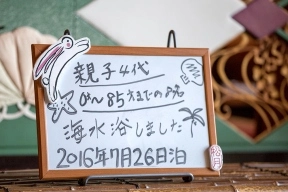 親子4代
0〜85才までの8名
海水浴しました
2016年7月26日泊